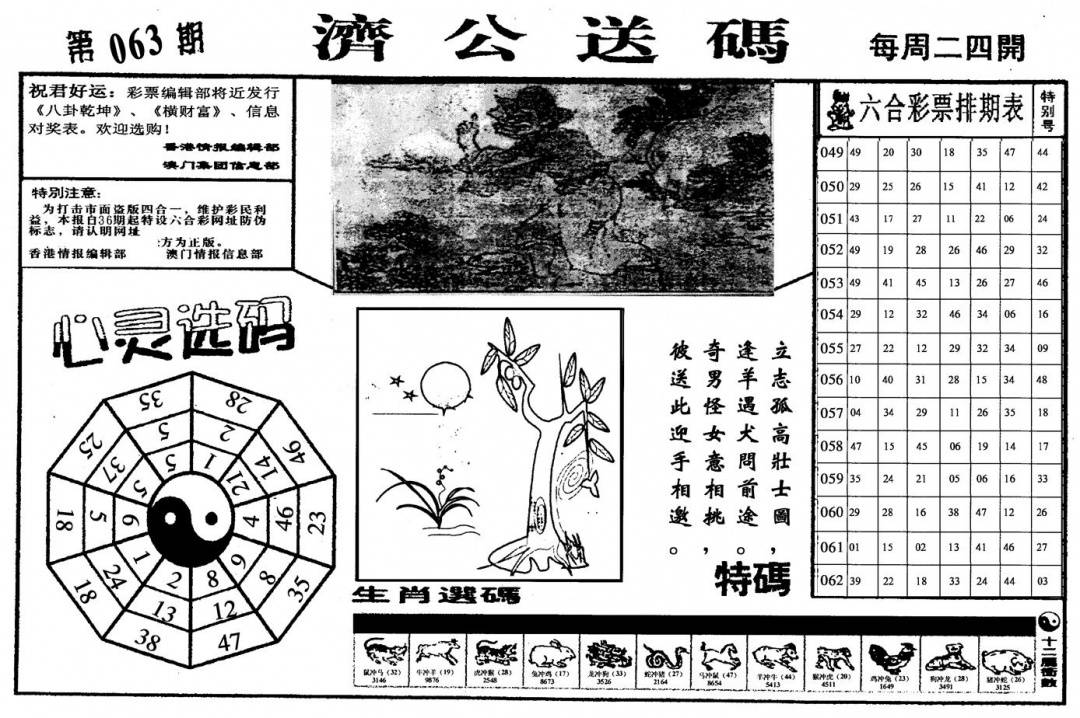 第063期
濟公送碼
每周二四開
祝君好运：彩票编辑部将近发行
《八卦乾坤》、《横财富》、信息
对奖表。欢迎选购！
香港情报编辑部
澳门集团信息部
特别注意：
为打击市面盗版四合一，维护彩民利
益，本报自36期起特设六合彩网址防伪
标志，请认明网址
:方为正版。
香港情报编辑部 澳门情报信息部
心灵选码
35 28 46 23 35 47 38 18 18 25
5 2 14 46 8 12 13 24 5 37
5 1 21 4 9 8 2 1 6 5
立志孤高壯士圖，
逢羊遇犬問前途。
奇男怪女意相挑，
彼送此迎手相邀。
特碼
生肖選碼
六合彩票排期表 特别号
049 49 20 30 18 35 47 44
050 29 25 26 15 41 12 42
051 43 17 27 11 22 06 24
052 49 19 28 26 46 29 32
053 49 41 45 13 26 27 46
054 29 12 32 46 34 06 16
055 27 22 12 29 32 34 09
056 10 40 31 28 15 34 48
057 04 34 29 11 26 35 18
058 47 15 45 06 19 14 17
059 35 24 21 05 06 16 33
060 29 28 16 38 47 12 26
061 01 15 02 13 41 46 27
062 39 22 18 33 24 44 03
鼠冲马（32） 牛冲羊（19） 虎冲猴（28） 兔冲鸡（17） 龙冲狗（33） 蛇冲猪（27） 马冲鼠（47） 羊冲牛（44） 猴冲虎（20） 鸡冲兔（23） 狗冲龙（28） 猪冲蛇（26）
3146 9876 2548 8673 3526 2164 8654 5413 4511 1649 3491 3125
十二屬衝數